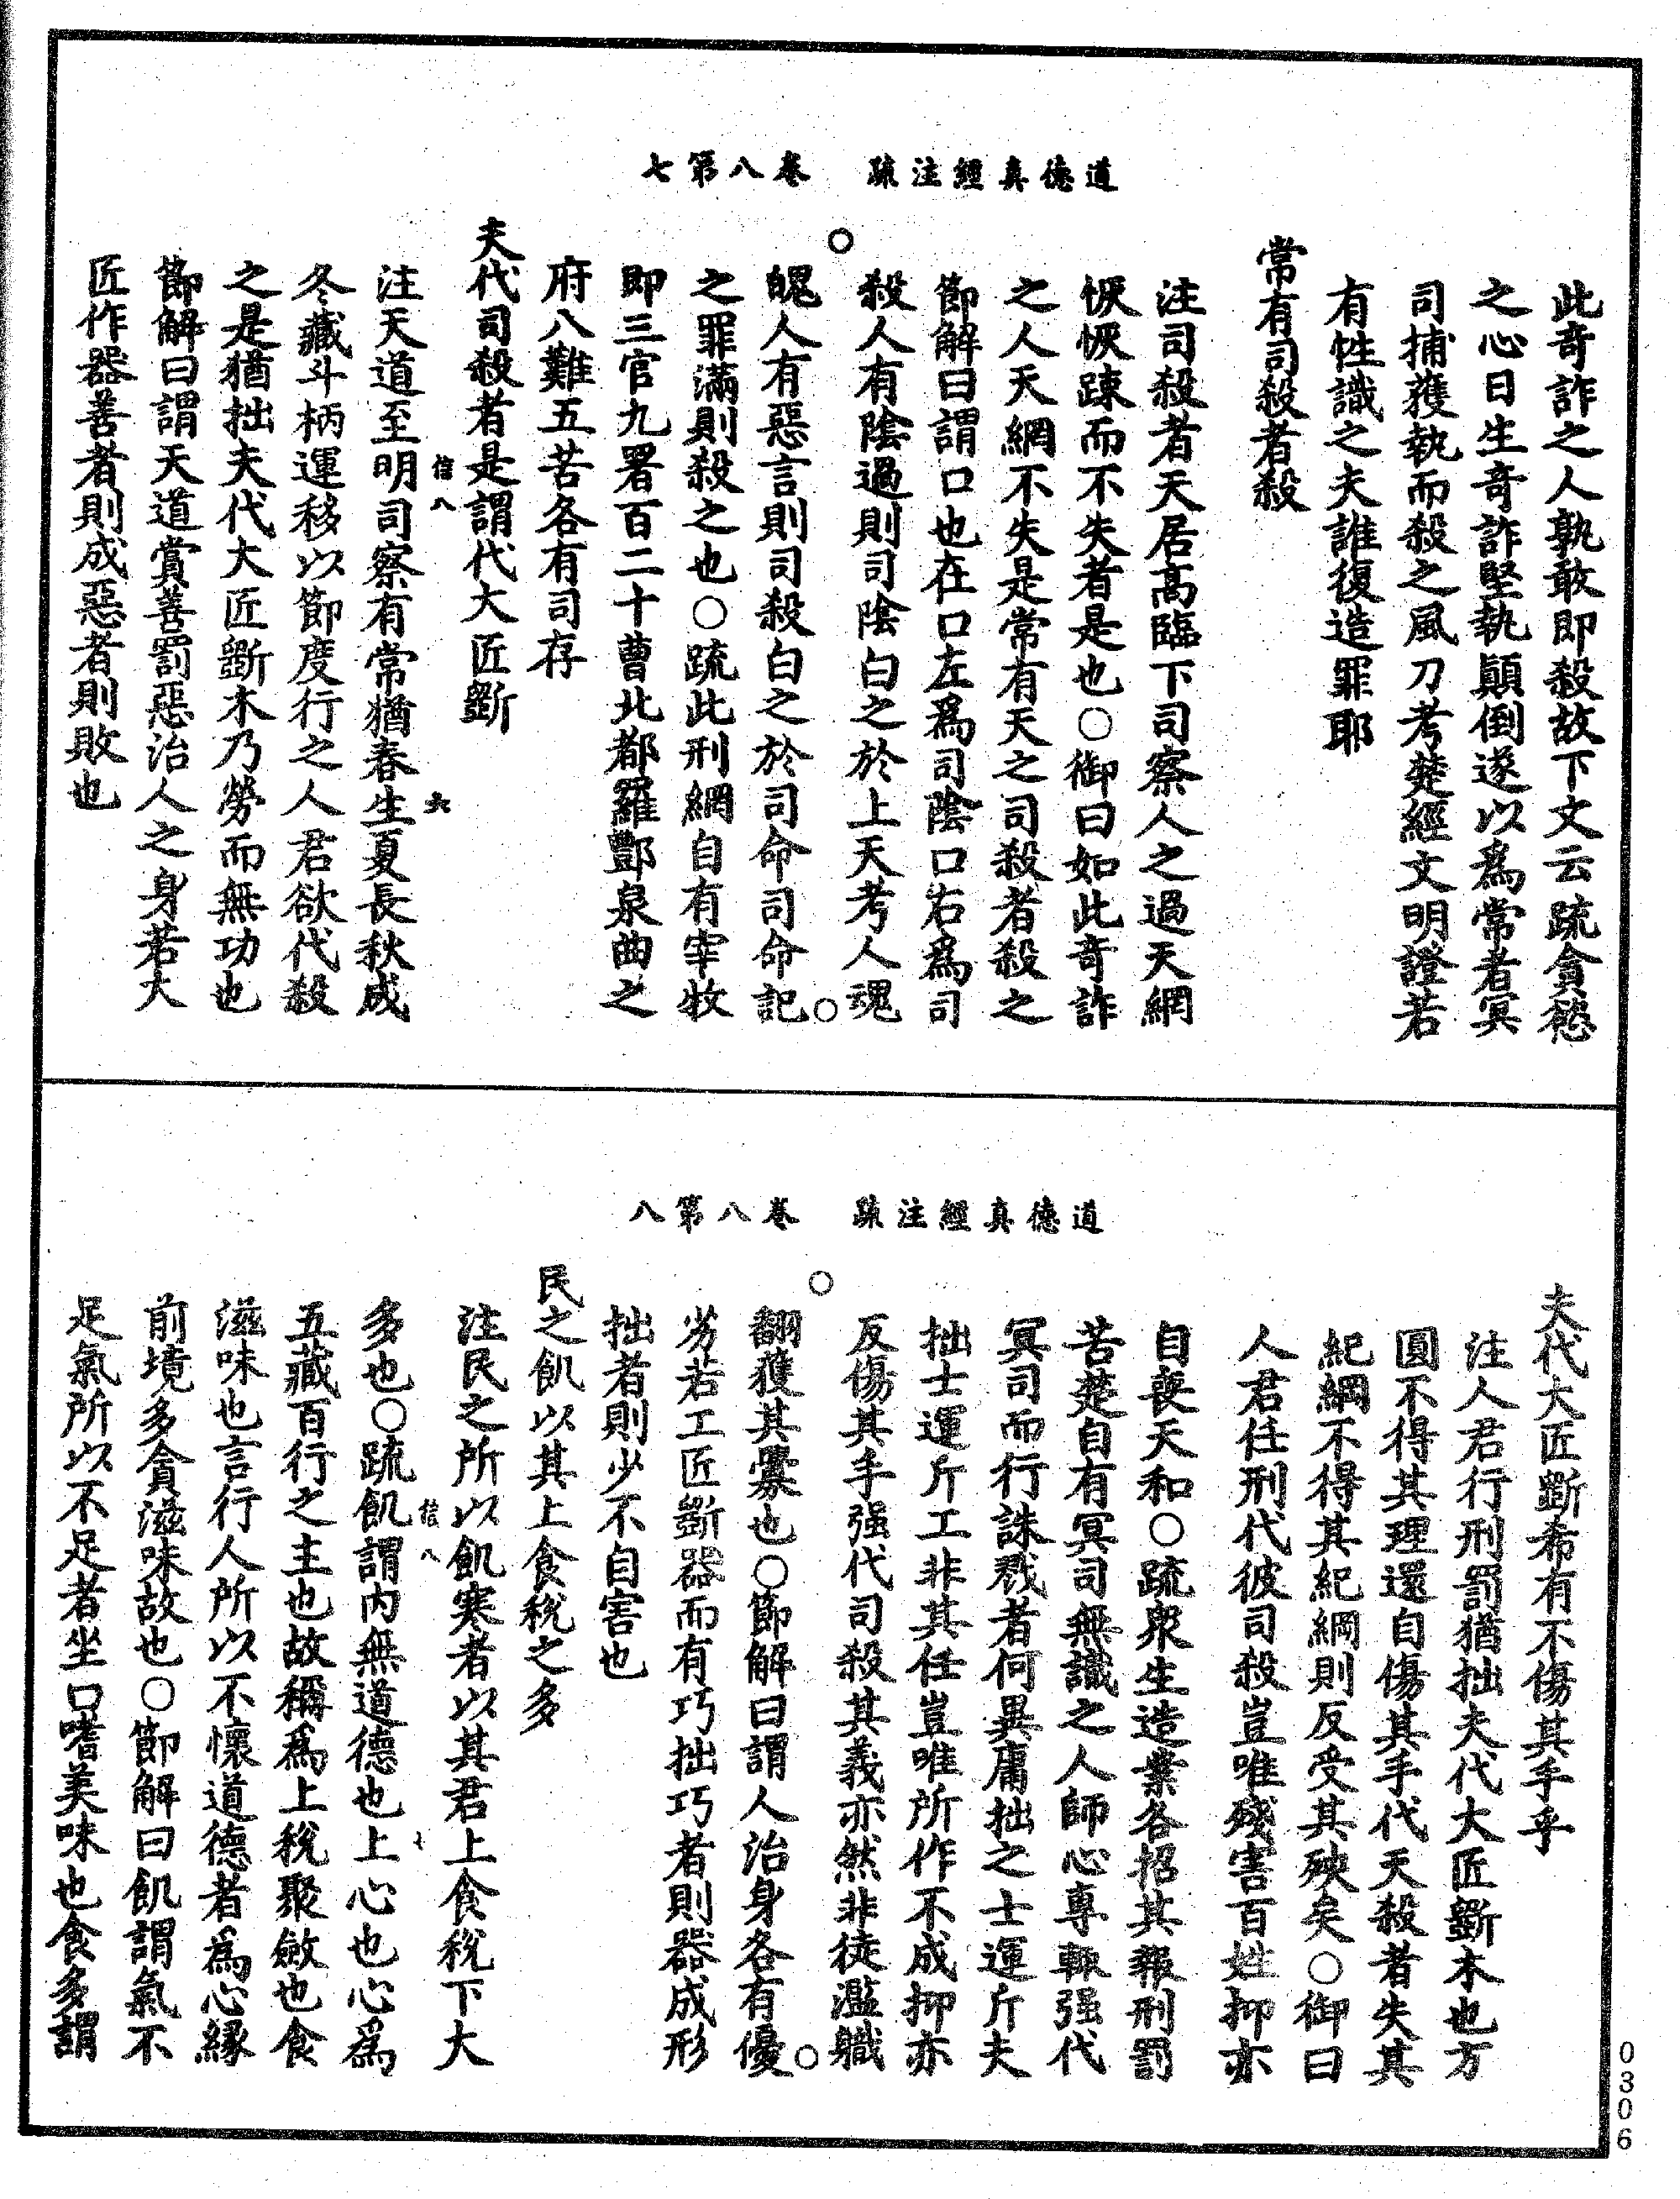 道德真經注疏　卷八第七
此奇詐之人孰敢即殺故下文云疏貪慾
之心日生奇詐堅執顚倒遂以爲常者冥
司捕獲執而殺之風刀考楚經文明證若
有性識之夫誰復造罪耶
常有司殺者殺
注司殺者天居高臨下司察人之過天網
恢恢踈而不失者是也○御曰如此奇詐
之人天網不失是常有天之司殺者殺之
節解曰謂口也在口左爲司陰口右爲司
殺人有陰過則司陰白之於上天考人魂
魄人有惡言則司殺白之於司命司命記
之罪滿則殺之也○疏此刑網自有宰牧
即三官九署百二十曹北都羅酆泉曲之
府八難五苦各有司存
夫代司殺者是謂代大匠斲
注天道至明司察有常猶春生夏長秋成
信八　六
冬藏斗柄運移以節度行之人君欲代殺
之是猶拙夫代大匠斲木乃勞而無功也
節解曰謂天道賞善罰惡治人之身若大
匠作器善者則成惡者則敗也
道德真經注疏　卷八第八
夫代大匠斲希有不傷其手乎
注人君行刑罰猶拙夫代大匠斲木也方
圓不得其理還自傷其手代天殺者失其
紀綱不得其紀綱則反受其殃矣○御曰
人君任刑代彼司殺豈唯殘害百姓抑亦
自喪天和○疏衆生造業各招其報刑罰
苦楚自有冥司無識之人師心專輒强代
冥司而行誅戮者何異庸拙之士運斤夫
拙士運斤工非其任豈唯所作不成抑亦
反傷其手强代司殺其義亦然非徒濫職
翻獲其舋也○節解曰謂人治身各有優
劣若工匠斲器而有巧拙巧者則器成形
拙者則少不自害也
民之飢以其上食稅之多
注民之所以飢寒者以其君上食稅下大
信八
多也○疏飢謂內無道德也上心也心爲
五藏百行之主也故稱爲上稅聚斂也食
滋味也言行人所以不懷道德者爲心緣
前境多貪滋味故也○節解曰飢謂氣不
足氣所以不足者坐口嗜美味也食多謂
0306